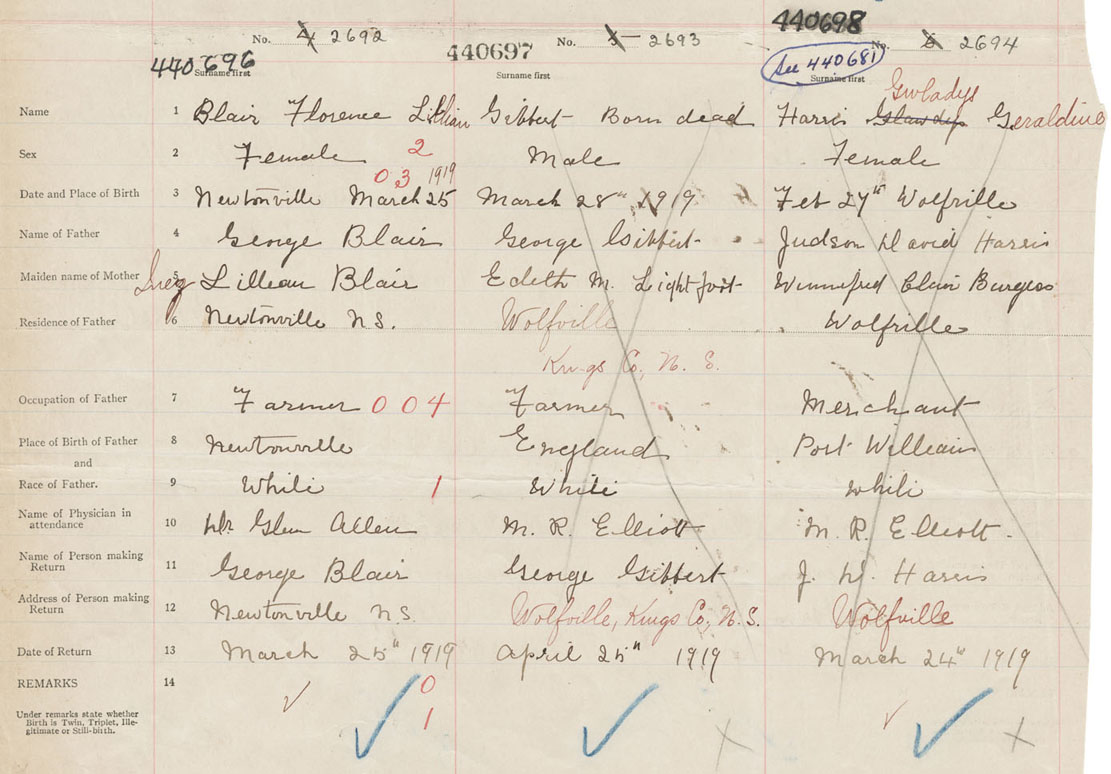 440698
No. 4 2692
No. 5 2693
No. 6 2694
440696
440697
See 440681
Surname first
Surname first
Surname first
Gwladys
Name 1 Blair Florence Lillian Gibbert Born dead Harris Glawdys Geraldine
Sex 2 Female 2 Male Female
03 1919
Date and Place of Birth 3 Newtonville March 25 March 28th 1919 Feb 27th Wolfville
Name of Father 4 George Blair George Gibbert Judson David Harris
Maiden name of Mother 5 Inez Lillean Blair Edeth M. Lightfoot Winnefred Clair Burgess
Residence of Father 6 Newtonville N.S. Wolfville Wolfville
Kings Co, N. S.
Occupation of Father 7 Farmer 004 Farmer Merchant
Place of Birth of Father 8 Newtonville England Port William
and
Race of Father. 9 White 1 White White
Name of Physician in
attendance 10 Dr. Glen Allen M. R. Elliott M. R. Elliott.
Name of Person making
Return 11 George Blair George Gibbert J. D. Harris
Address of Person making
Return 12 Newtonville N.S. Wolfville, Kings Co, N. S. Wolfville
Date of Return 13 March 25th 1919 April 25th 1919 March 24th 1919
REMARKS 14 0
Under remarks state whether
Birth is Twin, Triplet, Ille-
gitimate or Still-birth.
1